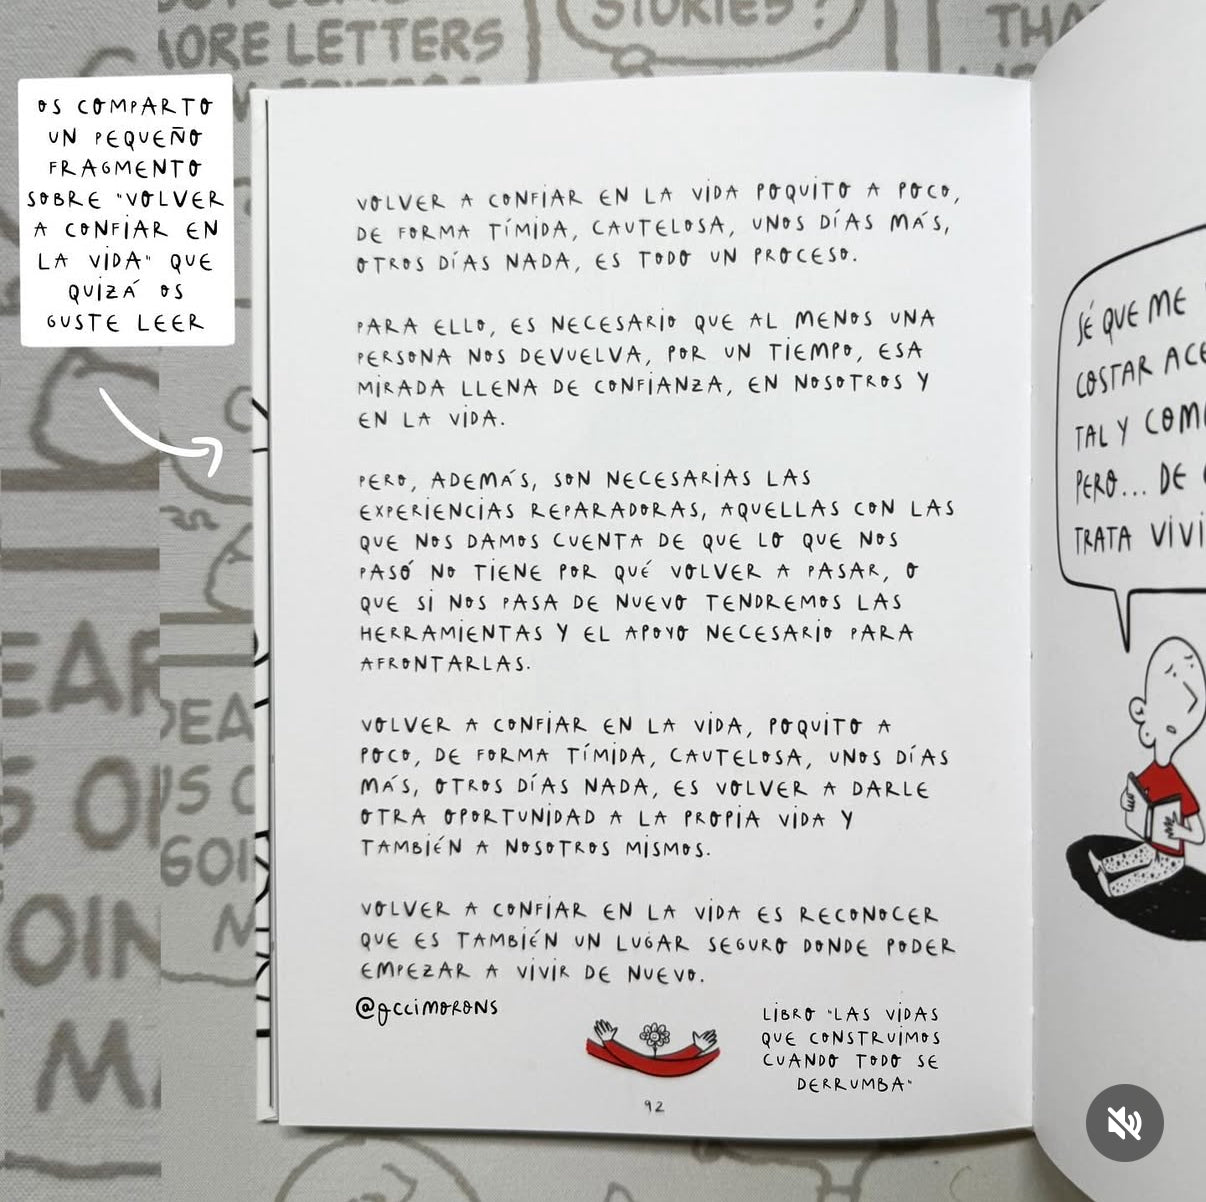 OS COMPARTO
UN PEQUEÑO
FRAGMENTO
SOBRE "VOLVER
A CONFIAR EN
LA VIDA" QUE
QUIZÁ OS
GUSTE LEER
VOLVER A CONFIAR EN LA VIDA POQUITO A POCO,
DE FORMA TÍMIDA, CAUTELOSA, UNOS DÍAS MÁS,
OTROS DÍAS NADA, ES TODO UN PROCESO.
PARA ELLO, ES NECESARIO QUE AL MENOS UNA
PERSONA NOS DEVUELVA, POR UN TIEMPO, ESA
MIRADA LLENA DE CONFIANZA, EN NOSOTROS Y
EN LA VIDA.
PERO, ADEMÁS, SON NECESARIAS LAS
EXPERIENCIAS REPARADORAS, AQUELLAS CON LAS
QUE NOS DAMOS CUENTA DE QUE LO QUE NOS
PASÓ NO TIENE POR QUÉ VOLVER A PASAR, O
QUE SI NOS PASA DE NUEVO TENDREMOS LAS
HERRAMIENTAS Y EL APOYO NECESARIO PARA
AFRONTARLAS.
VOLVER A CONFIAR EN LA VIDA, POQUITO A
POCO, DE FORMA TÍMIDA, CAUTELOSA, UNOS DÍAS
MÁS, OTROS DÍAS NADA, ES VOLVER A DARLE
OTRA OPORTUNIDAD A LA PROPIA VIDA Y
TAMBIÉN A NOSOTROS MISMOS.
VOLVER A CONFIAR EN LA VIDA ES RECONOCER
QUE ES TAMBIÉN UN LUGAR SEGURO DONDE PODER
EMPEZAR A VIVIR DE NUEVO.
@gccimorons
LIBRO "LAS VIDAS
QUE CONSTRUIMOS
CUANDO TODO SE
DERRUMBA"
92
SÉ QUE ME
COSTAR
TAL Y
PERO... DE
TRATA
LETTERS
STORIES?